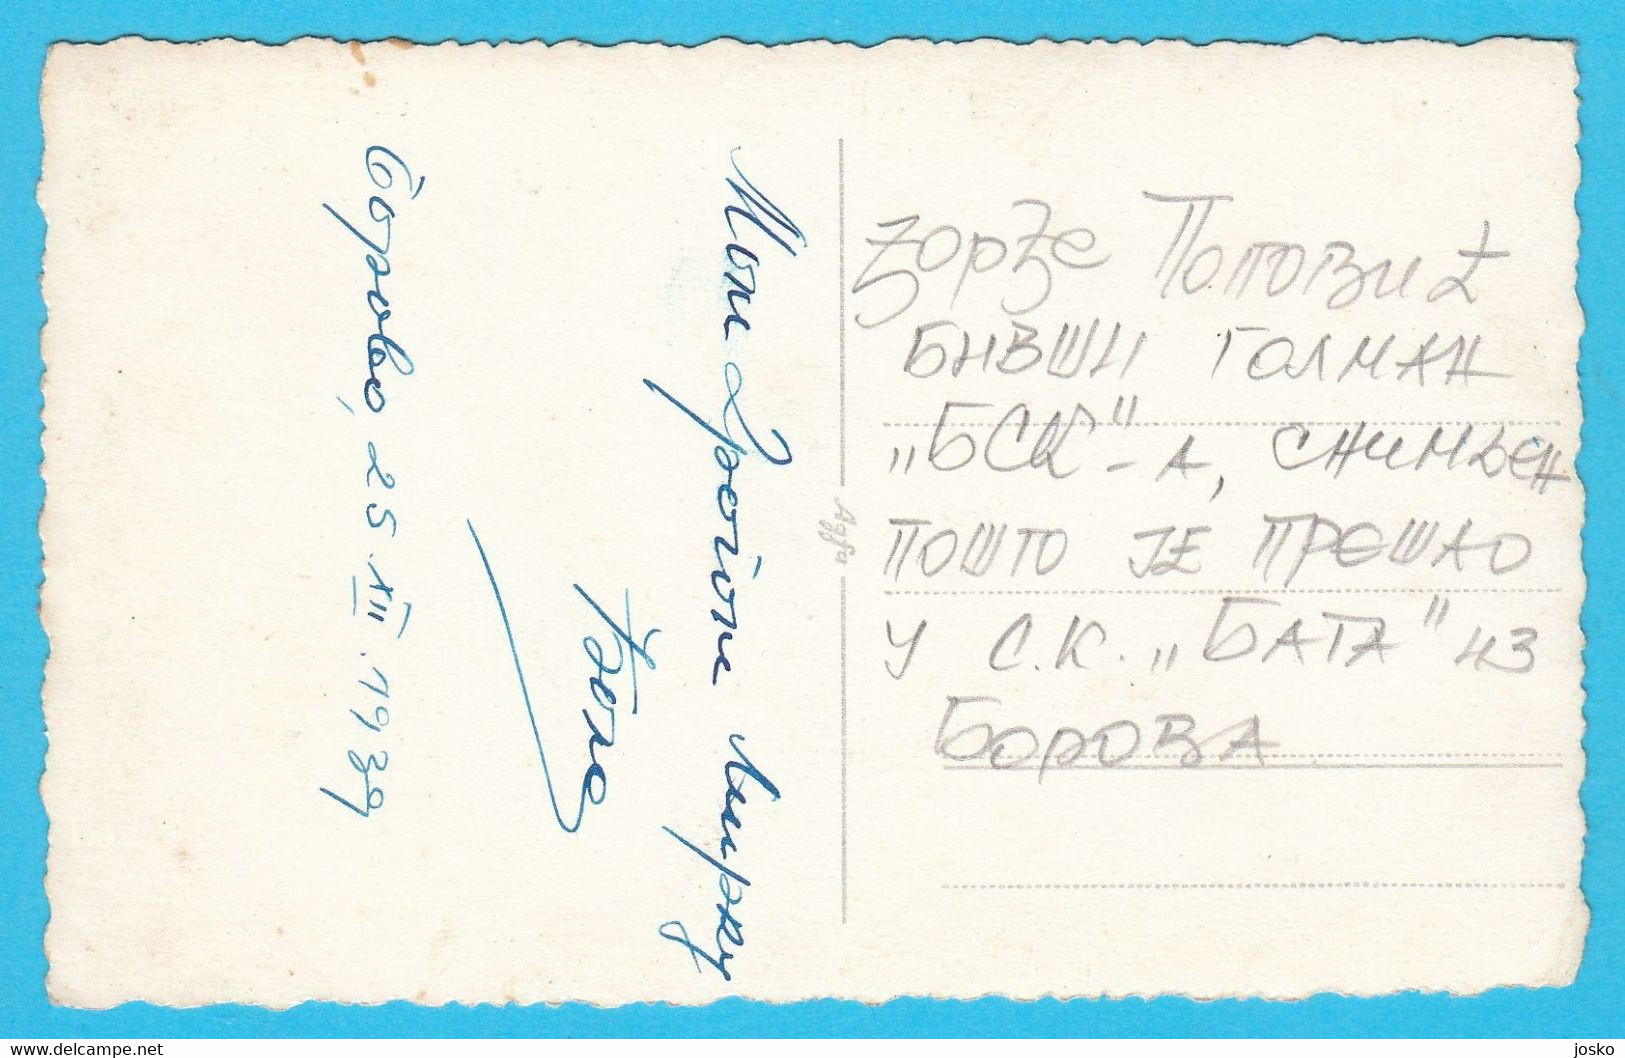 Мом драгом Мирку
Боле
Борово, 25.XII.1939
Agfa
Ђорђе Поповић
БИВШИ ГОЛМАН
„БСК"-А, СНИМЉЕН
ПОШТО ЈЕ ПРЕШАО
У С.К. „БАТА" ИЗ
БОРОВА
www.delcampe.net
josko